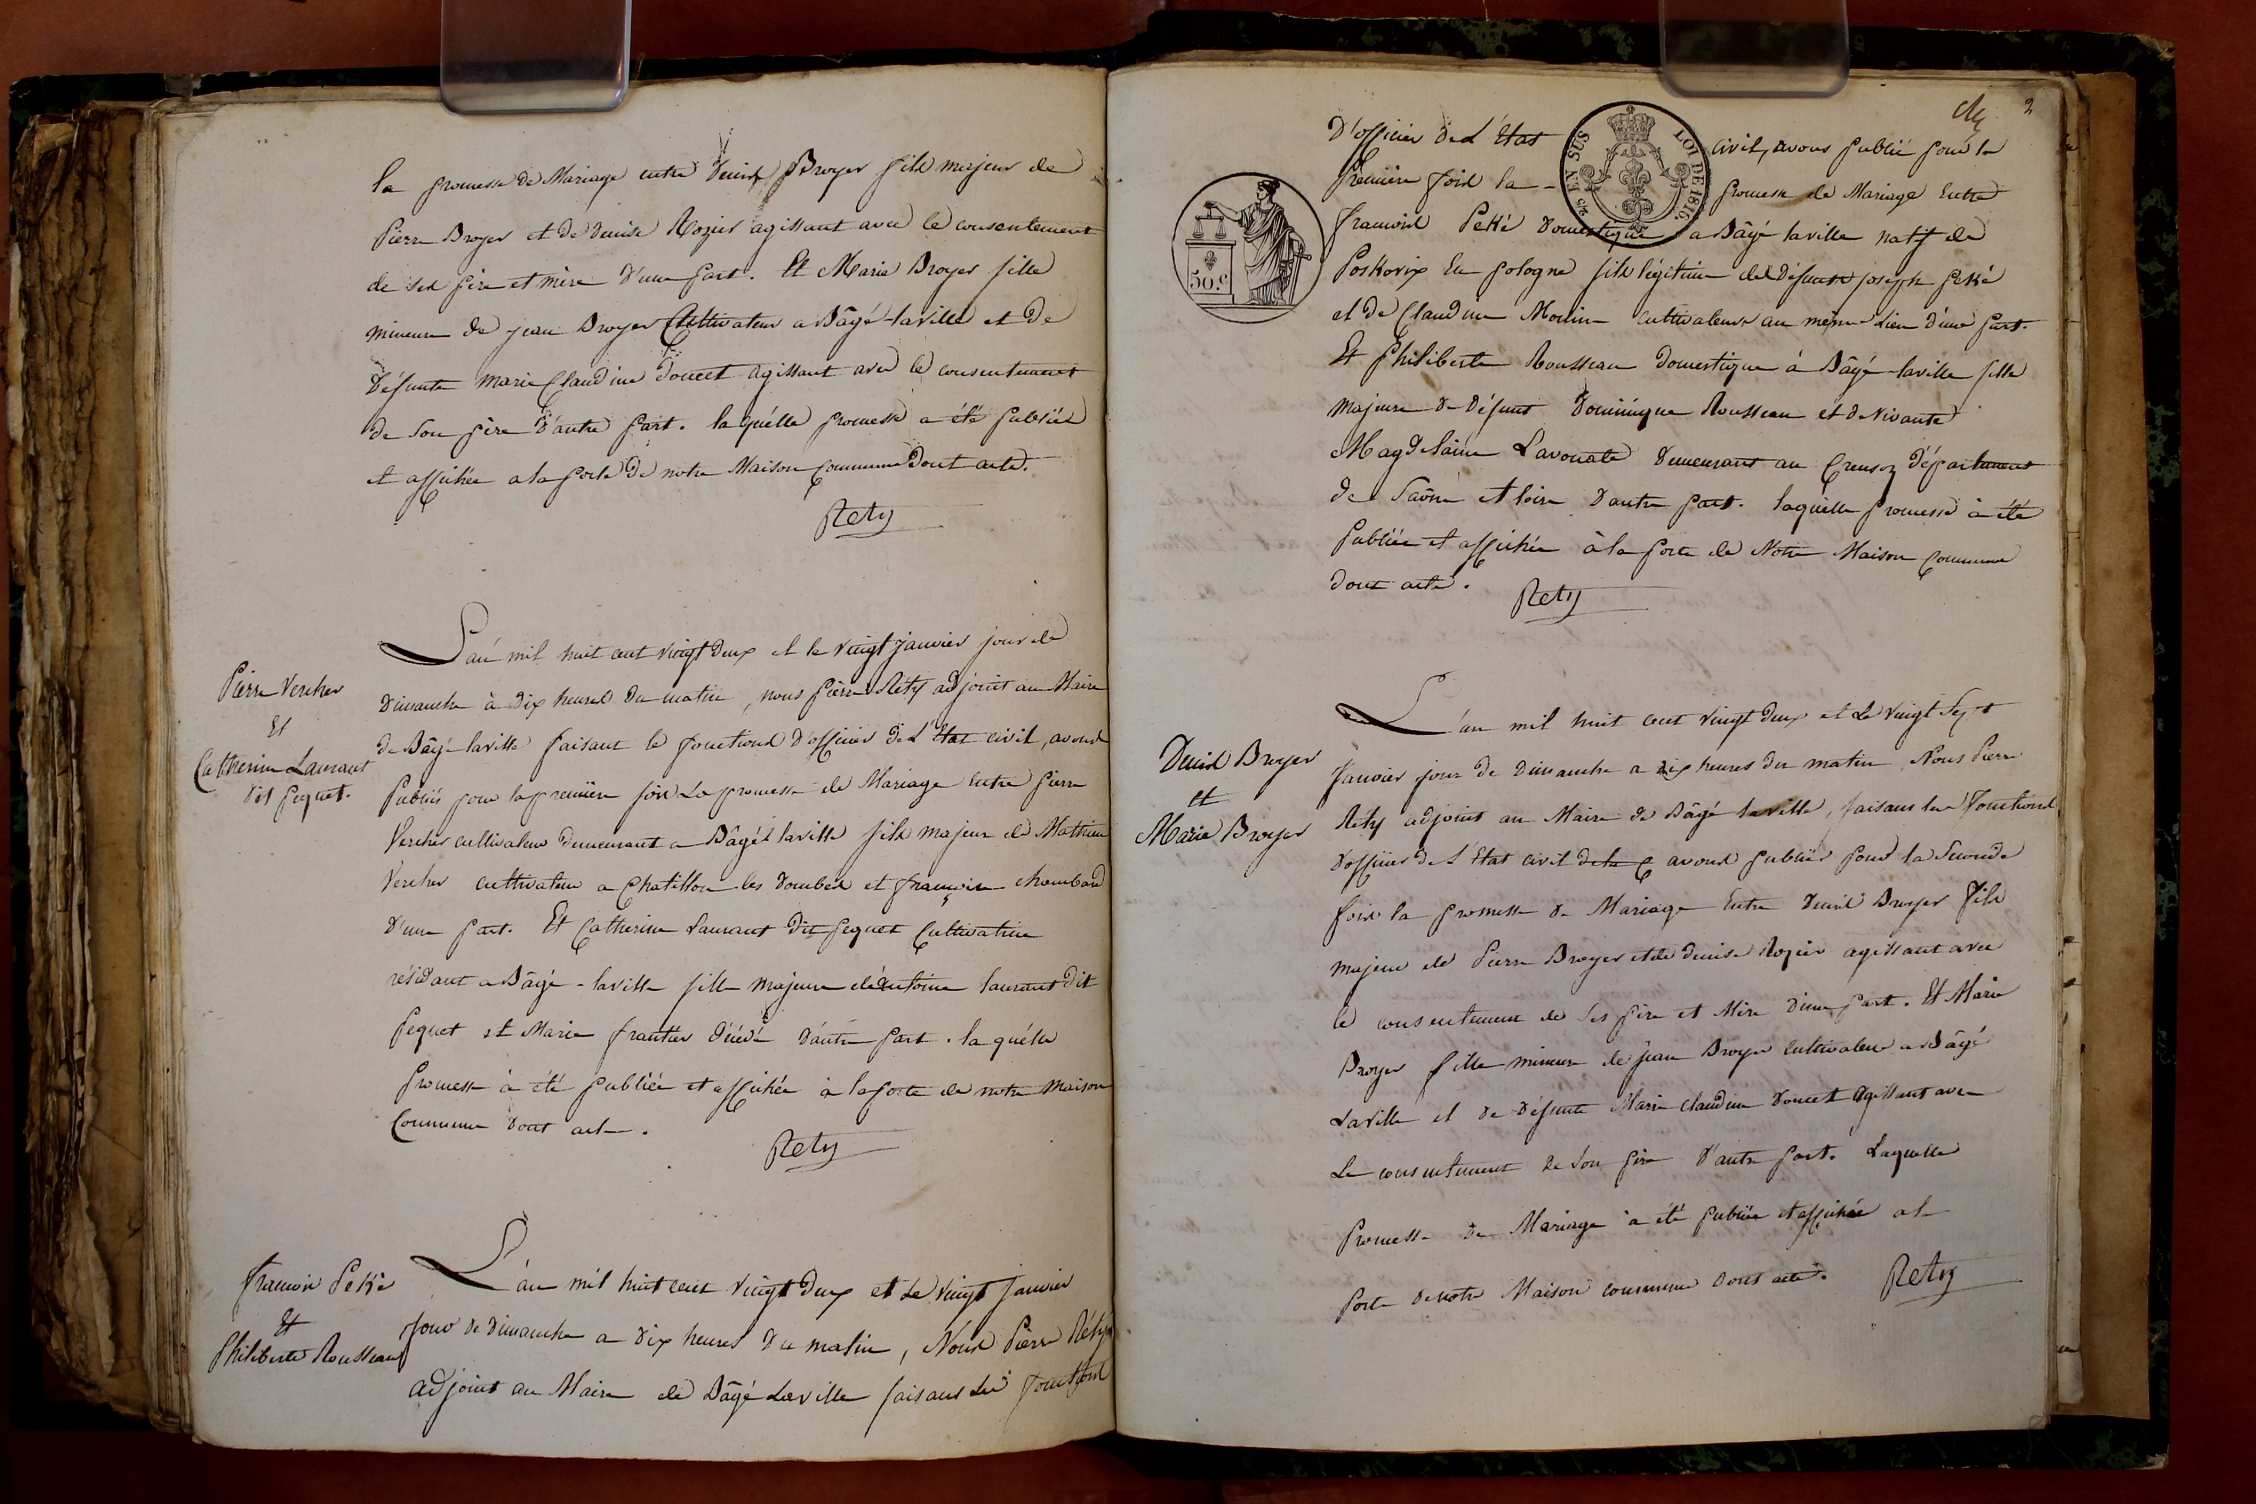 la promesse de Mariage entre Denis Broyer fils majeur de
Pierre Broyer et de Denise Rozier agissant avec le consentement
de ses père et mère d'une part. Et Marie Broyer fille
mineure de jean Broyer Cultivateur a Bâgé-laville et de
défunte Marie Claudine doucet agissant avec le consentement
de son père d'autre part. laquélle promesse a été publiée
et affichée a la porte de notre Maison commune dont acte.
Rety
Pierre Vercher
Et
Catherine Laurant
dit pequet.
L'an mil huit cent vingt deux et le vingt janvier jour de
dimanche à dix heures du matin, nous pierre Rety adjoint au Maire
de Bâgé-laville faisant le fonctions d'officier de L'état civil, avons
publiés pour la première fois La promesse de Mariage entre pierre
Vercher cultivateur demeurant a Bâgé laville fils majeur de Mathieu
Vercher cultivateur a Chatillon-les dombes et françoise chambard
d'une part. Et Catherine Laurant dit pequet Cultivatrice
résidant a Bâgé-laville fille majeure de antoine laurant dit
pequet et Marie frantier décédé d'autre part. la quélle
promesse à été publiée et affichée à la porte de notre maison
Commune dont acte.
Rety
francois Pekké
Et
Philiberte Rousseau
L'an mil huit cent vingt deux et Le vingt janvier
jour de dimanche a dix heures du matin, Nous Pierre Réty
adjoint au Maire de Bâgé Laville faisant les fonctions
2
D'officier de L'état civil, avons publié pour la
EN SUS
LOI DE 1816.
50.c
Première fois la promesse de Mariage entre
francois Pekké domestique a Bâgé laville natif de
Poskovix en pologne fils légitime de défunt joseph pekké
et de Claudine Moulin cultivateurs au même Lieu d'une part.
Et Philiberte Rousseau domestique à Bâgé-laville fille
majeure de défunt Dominique Rousseau et de vivante
Magdelaine Lavouate demeurant au Creusoz département
de Saône et loire d'autre part. laquélle promesse à été
Publiée et affichée à la porte de Notre Maison Commune
dont acte.
Rety
Denis Broyer
et
Marie Broyer
L'an mil huit cent vingt deux et Le vingt Sept
Janvier jour de dimanche a dix heures du matin, Nous Pierre
Rety adjoint au Maire de Bâgé laville, faisant les fonctions
d'officier de L'état civil de la C avons publiés pour la Seconde
fois la promesse de Mariage entre Denis Broyer fils
majeur de Pierre Broyer et de denise Rozier agissant avec
le consentement de ses père et Mère d'une part. Et Marie
Broyer fille mineure de jean Broyer cultivateur a Bâgé
Laville et de défunte Marie claudine Doucet agissant avec
Le consentement de Son père d'autre part. Laquelle
Promesse de Mariage a été publiée et affichée a la
porte de notre Maison commune dont acte.
Rety